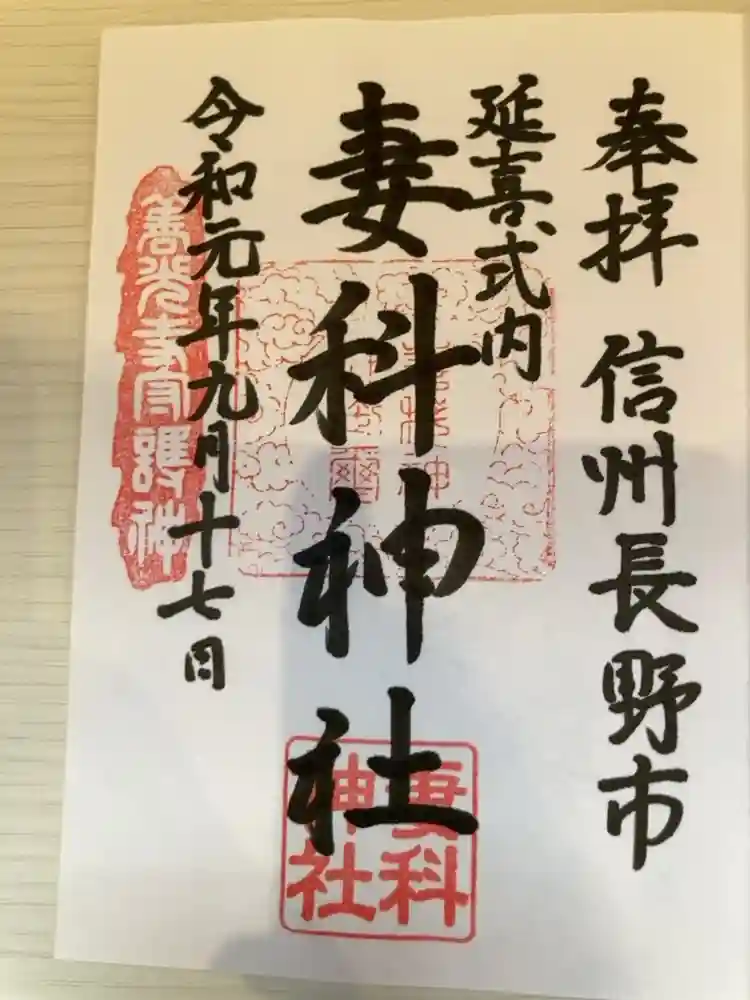 奉拝 信州長野市
延喜式内
妻科神社
令和元年九月十七日
善光寺守護神
妻科
神社